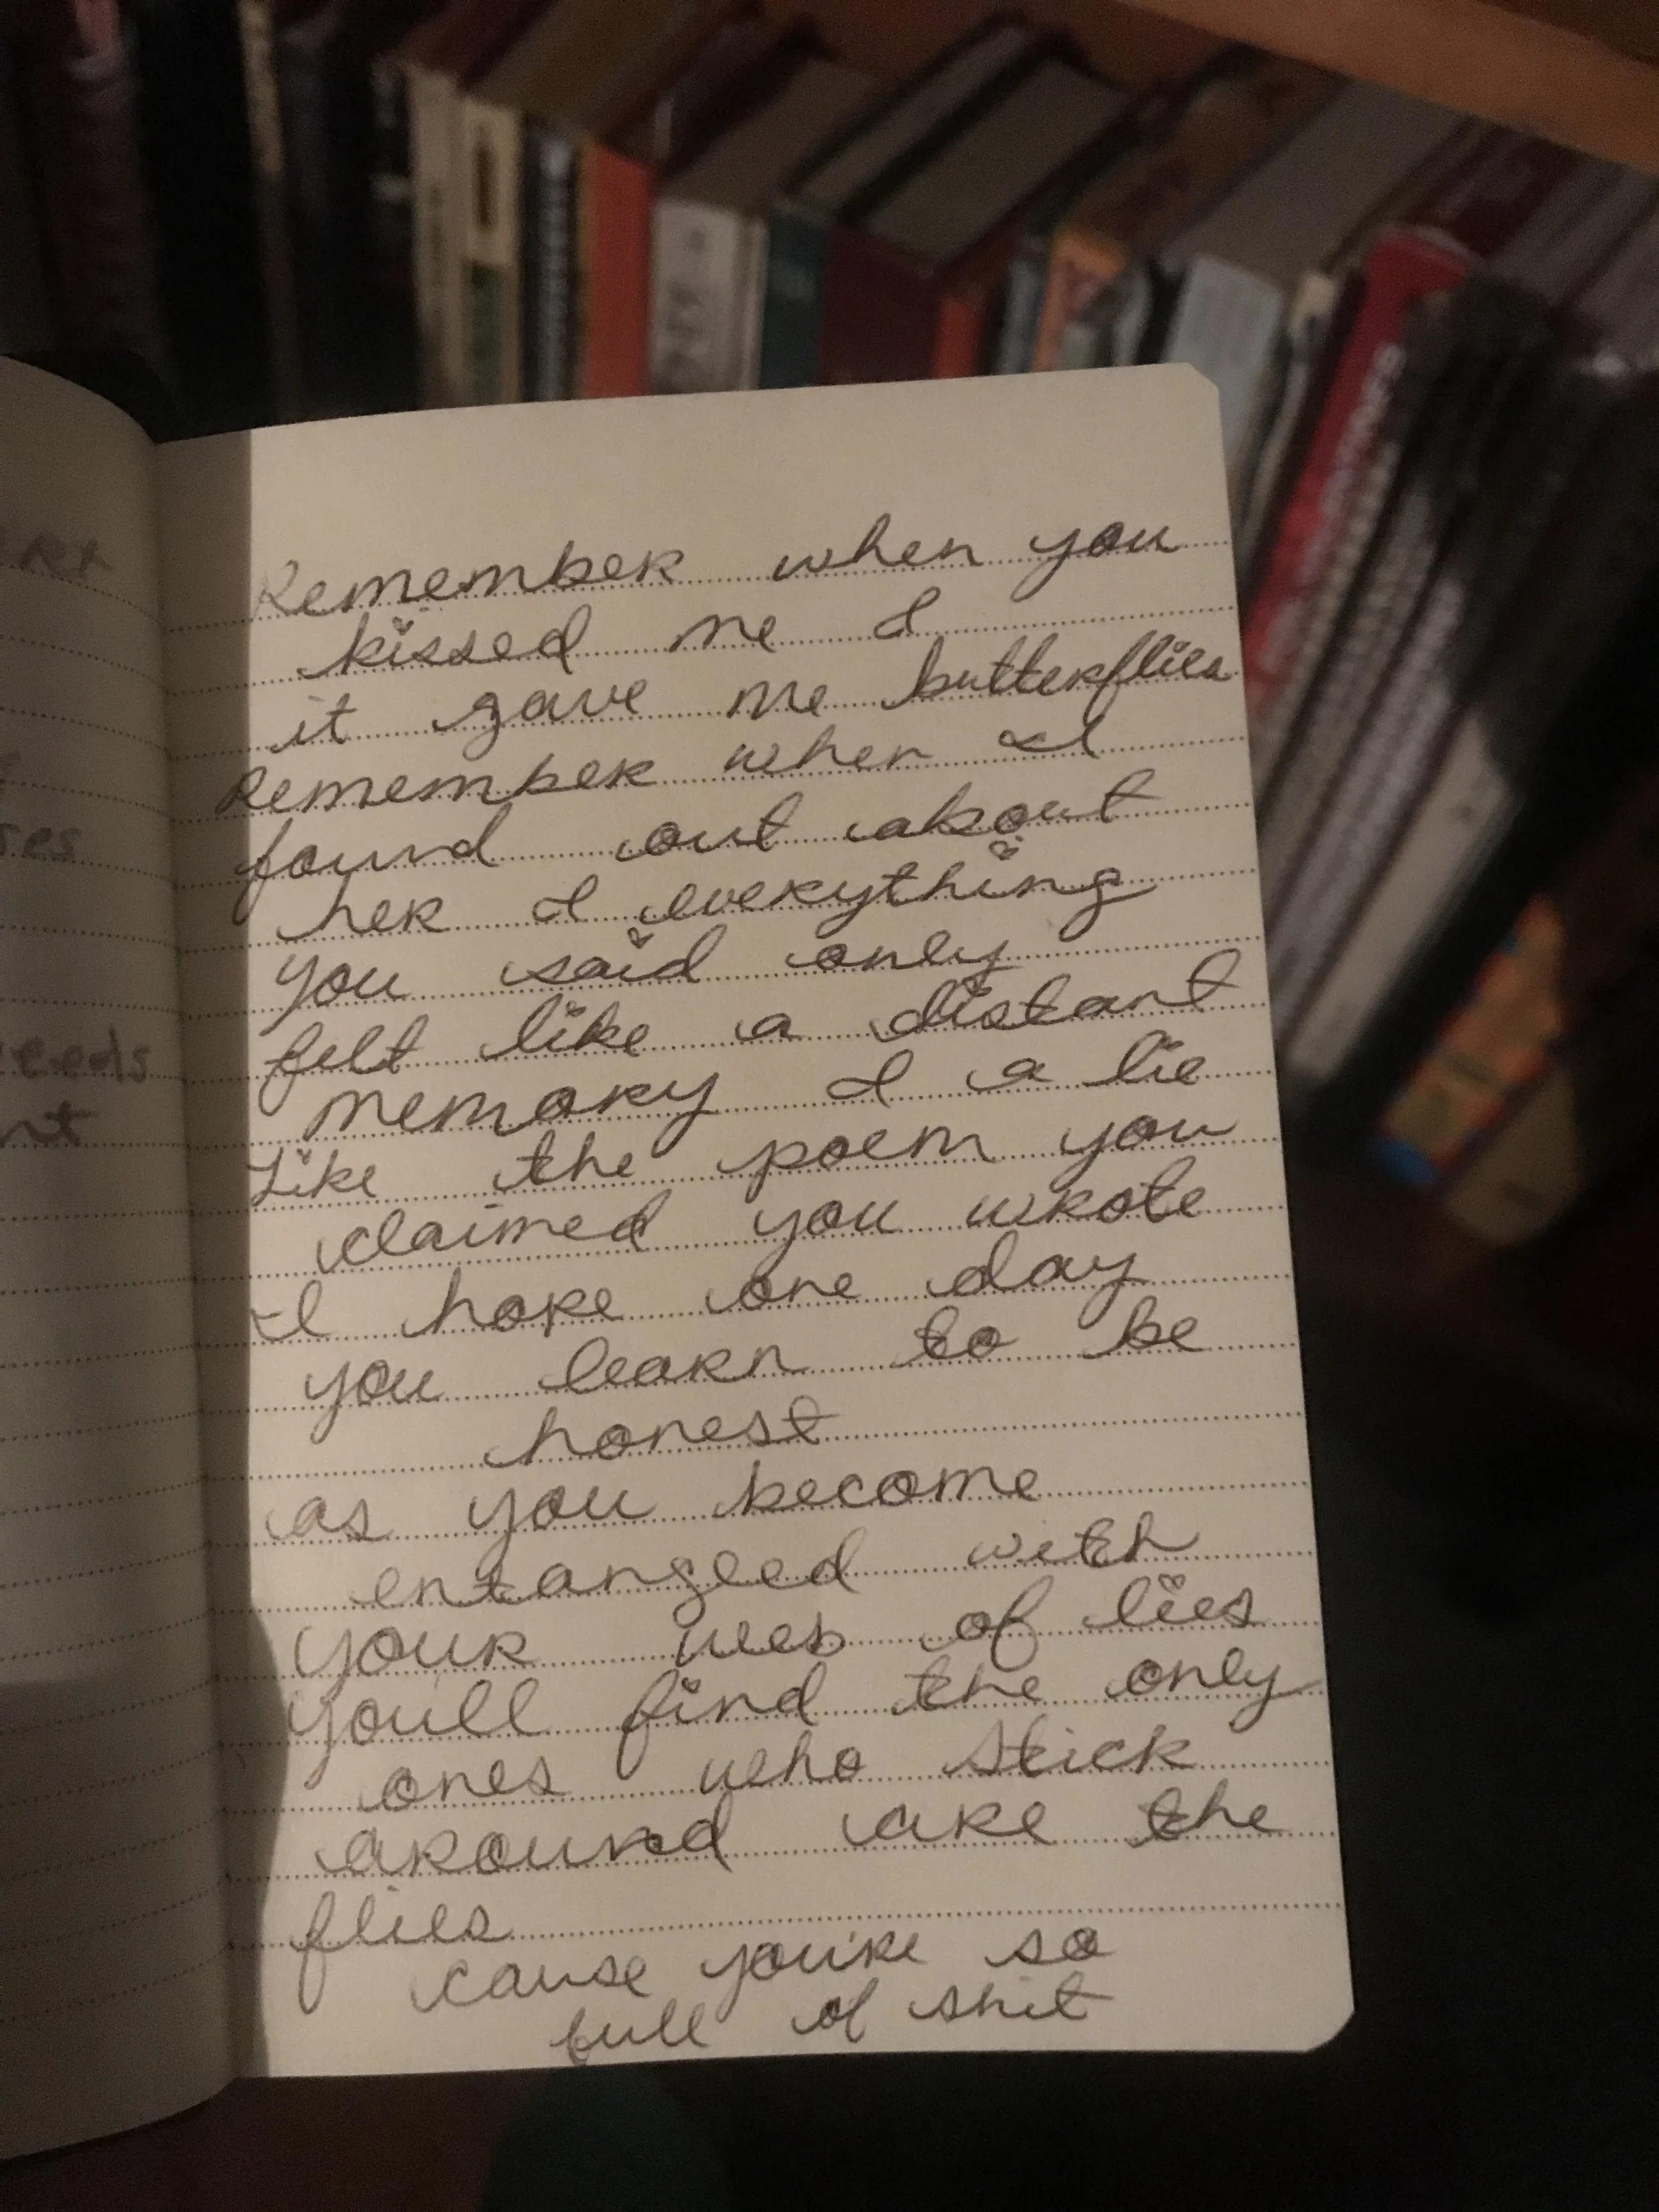 Remember when you
kissed me &
it gave me butterflies
Remember when I
found out about
her & everything
you said only
felt like a distant
memory & a lie
Like the poem you
claimed you wrote
I hope one day
you learn to be
honest
as you become
entangled with
your web of lies
you'll find the only
ones who stick
around are the
flies
cause you're so
full of shit